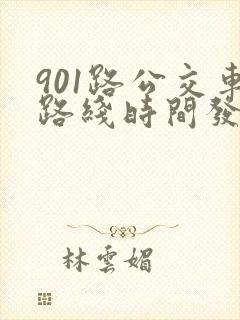 901路公交車
路綫時間發
林雲媚